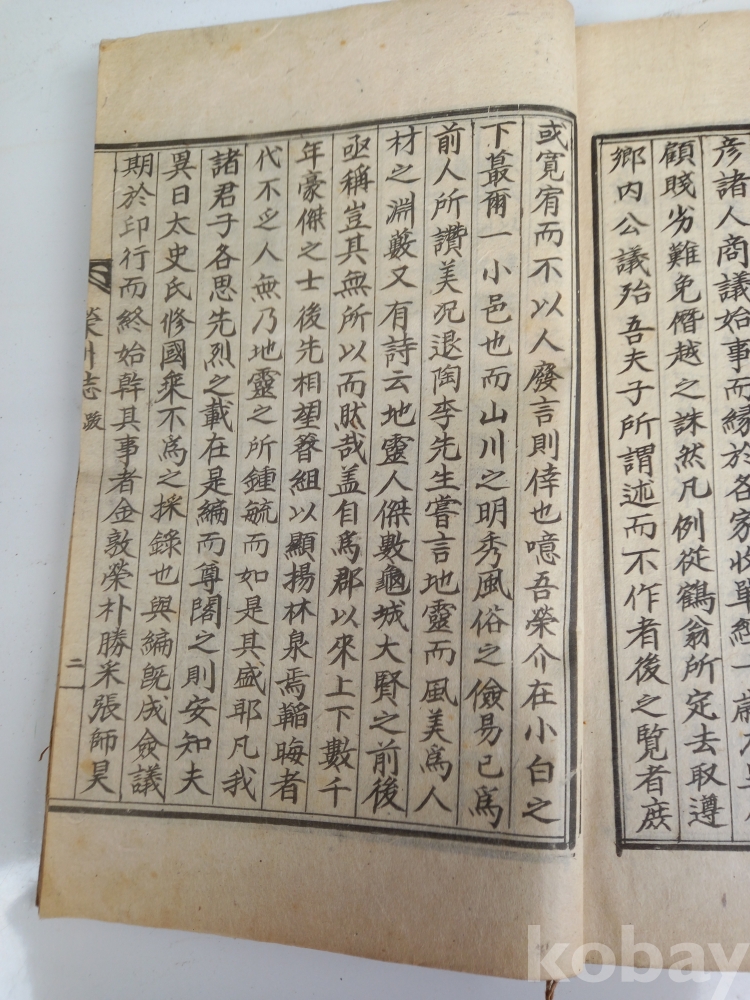 彦諸人商議始事而縁於各家收單經一歲
顧賤劣難免僭越之誅然凡例從鶴翁所定去取遵
鄉內公議殆吾夫子所謂述而不作者後之覽者庶
或寬宥而不以人廢言則倖也噫吾榮介在小白之
下蕞爾一小邑也而山川之明秀風俗之儉易已爲
前人所讚美況退陶李先生嘗言地靈而風美爲人
材之淵藪又有詩云地靈人傑數龜城大賢之前後
亟稱豈其無所以而肰哉盖自爲郡以來上下數千
年豪傑之士後先相望簪組以顯揚林泉焉韜晦者
代不乏人無乃地靈之所鍾毓而如是其盛耶凡我
諸君子各思先烈之載在是編而尊閣之則安知夫
異日太史氏修國乘不爲之採錄也與編旣成僉議
期於印行而終始幹其事者金敦榮朴勝采張師昊
榮州志 跋
二
kobay